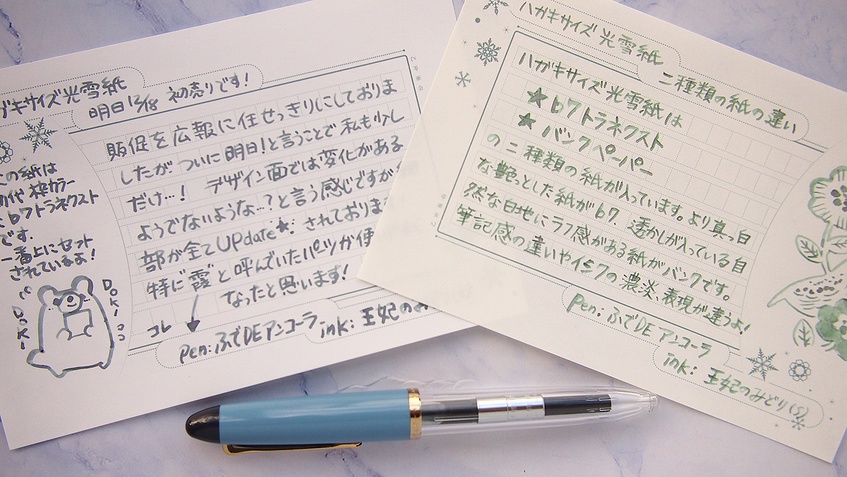 ガキサイズ光雪紙
明日12/18 初売りです!
販促を広報に任せっきりにしておりま
したが、ついに明日!と言うことで私も少し
だけ…! デザイン面では変化がある
ようでないような…?と言う感じですが
部が全てUPdate★ されておりま
特に霞と呼んでいたパツが使
なったと思います!
この紙は
初代 枠カラー
b7トラネクスト
です。
一番上にセット
されているよ!
DoKi
DoKi
コレ
Pen:ふでDEアンコーラ
ink:王妃のみ
ハガキサイズ光雪紙
二種類の紙の違い
ハガキサイズ光雪紙は
★b7トラネクスト
★バンクペーパー
の二種類の紙が入っています。より真っ白
な艶っとした紙がb7、透かしが入っている自
然な白地にラフ感がある紙がバンクです。
筆記感の違いやインクの濃淡、表現が違うよ!
Pen:ふでDEアンコーラ
ink:王妃のみどり(S)